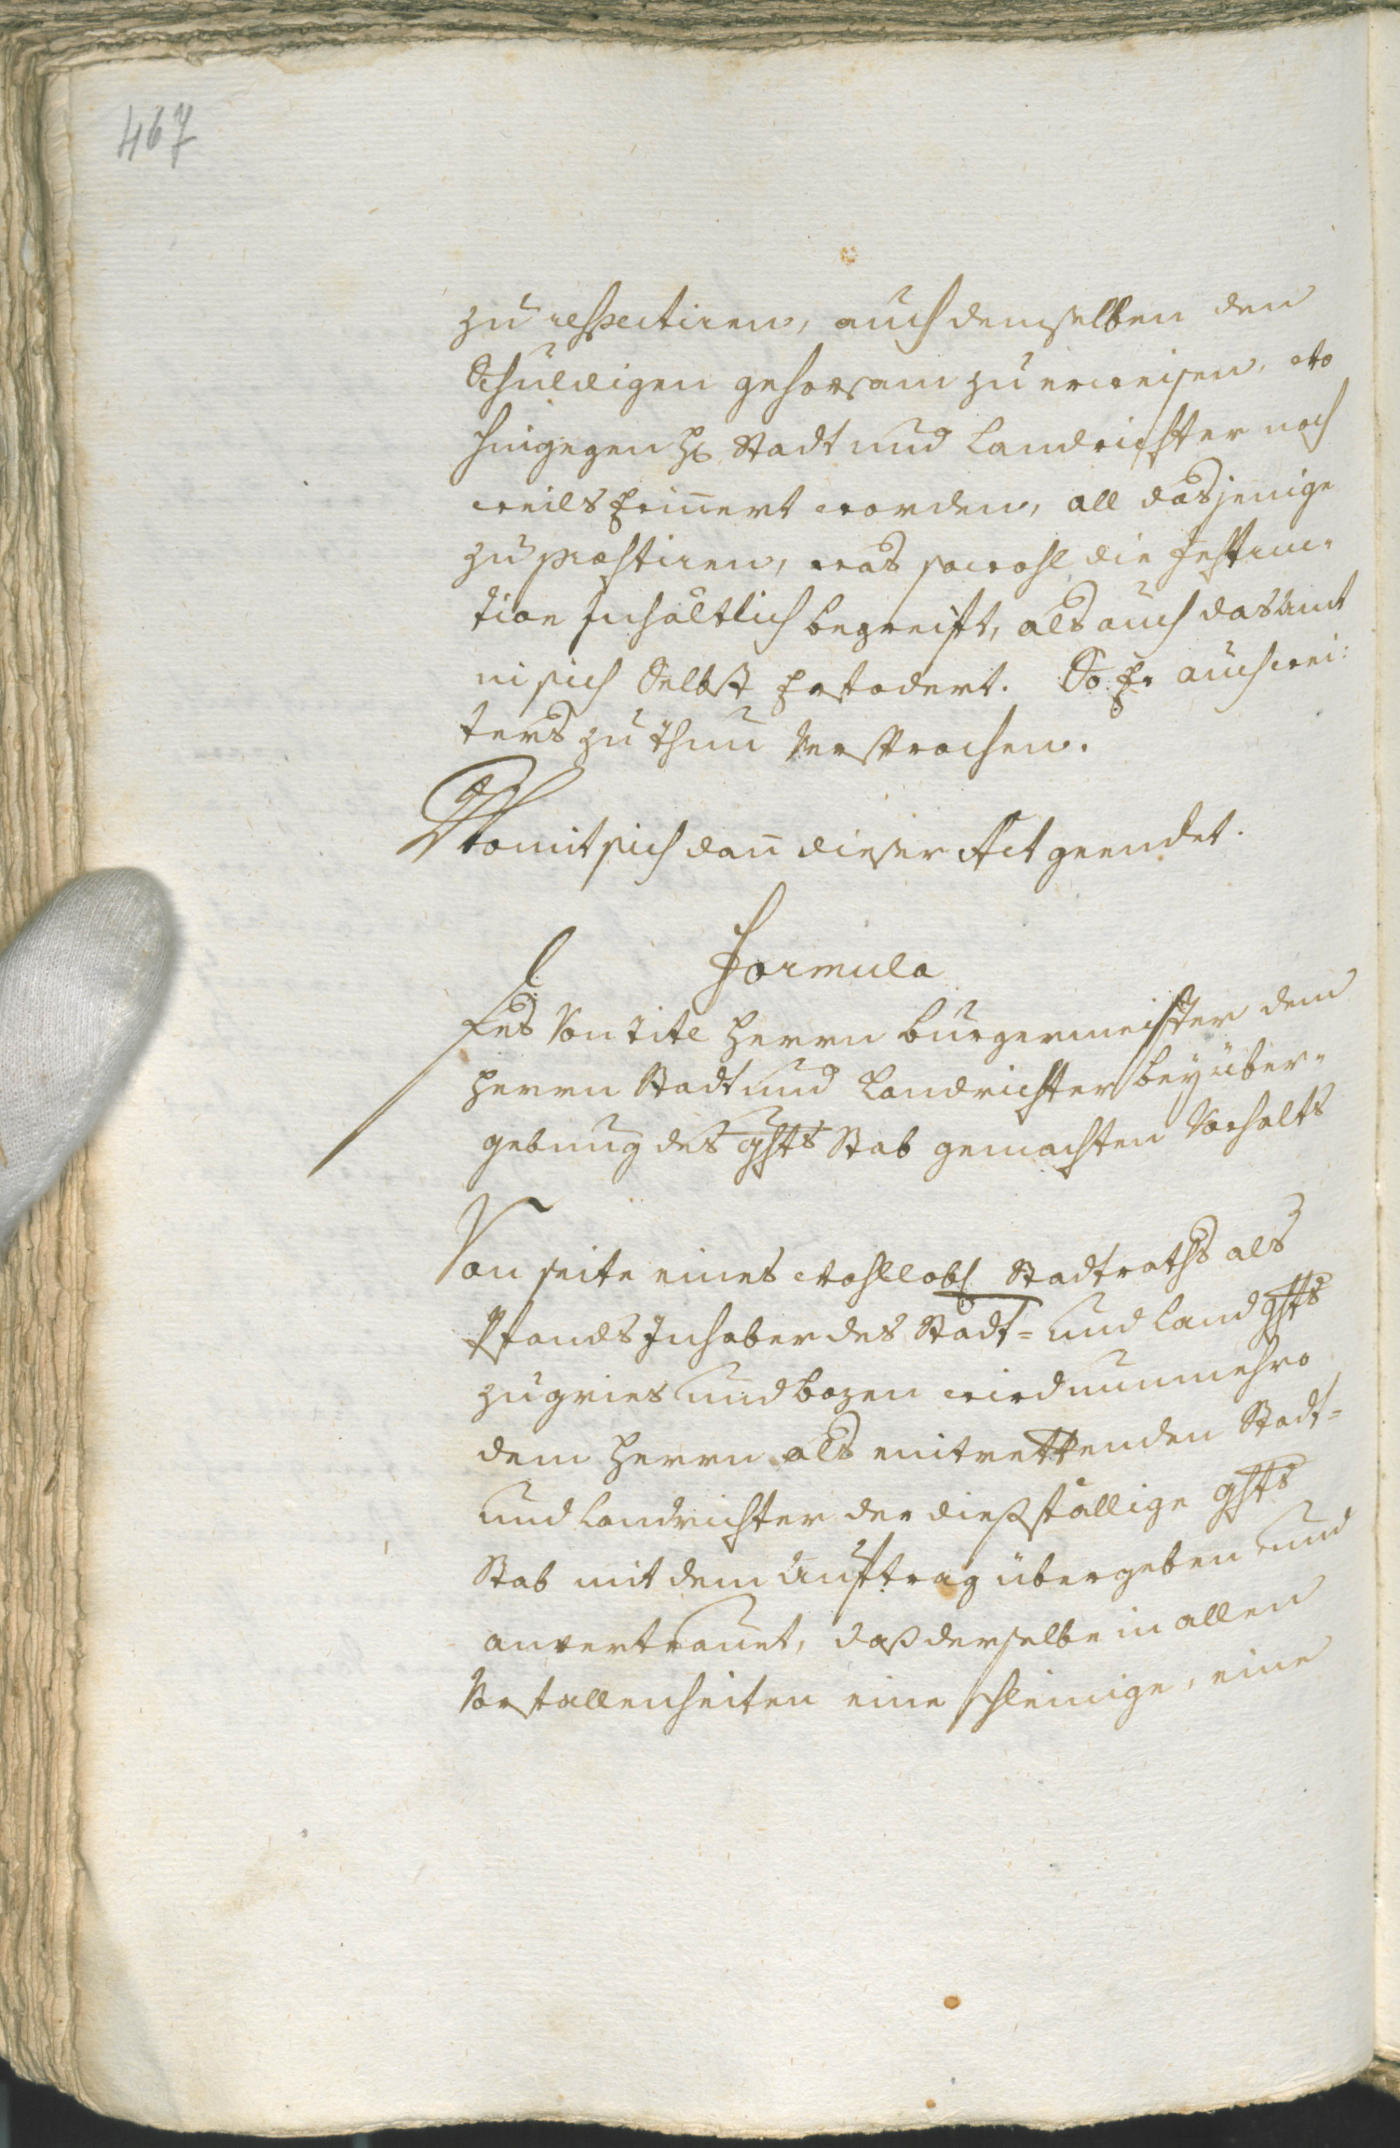 467
zu respectiren, auch demselben den
Schuldigen gehorsam zu erweisen, wo
hingegen H: Stadt und Landrichter noch
weils Erinnert worden, all dasjenige
zu præstiren, was sowohl die Instruc-
tion Inhaltlich begreift, als auch das Amt
in sich Selbst Erfodert. So Er auch wei:
ters zu thun Versprochen.
Womit sich dan̅ dieser Act geendet.
Formula
Des Von Titl Herrn Burgermeister dem
Herrn Stadt und Landrichter bey über-
gebung des ghts Stab gemachten Vorhalts
Von seite eines Wohllobl Stadtraths als
Pfands Inhaber des Stadt- und Landghts
zu gries und bozen wird nunmehro
dem Herrn als eintrettenden Stadt-
und Landrichter der diesfällige ghts
Stab mit dem Auftrag übergeben und
anvertrauet, daß derselbe in allen
Vorfallenheiten eine schleinige, eine